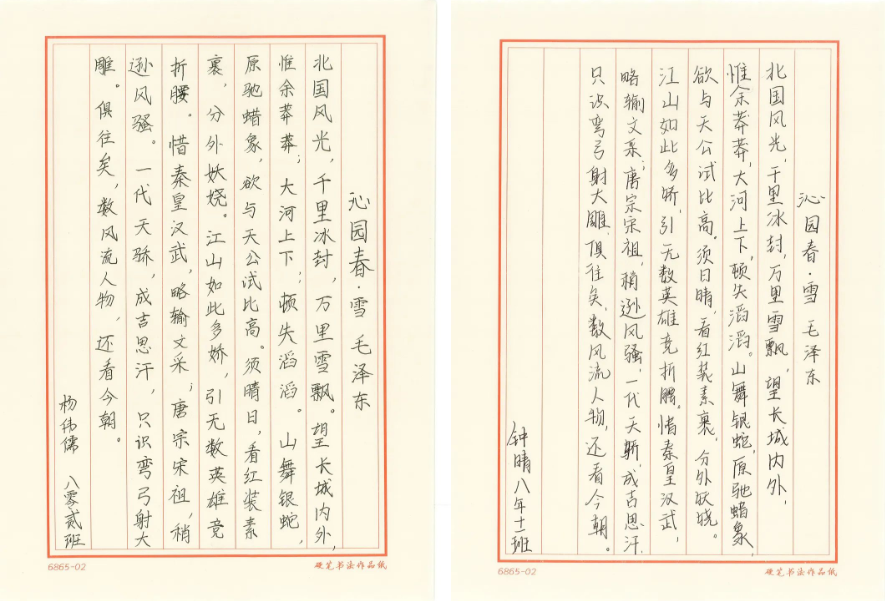 沁园春·雪 毛泽东
北国风光，千里冰封，万里雪飘。望长城内外，
惟余莽莽；大河上下，顿失滔滔。山舞银蛇，
原驰蜡象，欲与天公试比高。须晴日，看红装素
裹，分外妖娆。江山如此多娇，引无数英雄竞
折腰。惜秦皇汉武，略输文采；唐宗宋祖，稍
逊风骚。一代天骄，成吉思汗，只识弯弓射大
雕。俱往矣，数风流人物，还看今朝。
杨伟儒 八零贰班
6865-02
硬笔书法作品纸
沁园春·雪 毛泽东
北国风光，千里冰封，万里雪飘，望长城内外，
惟余莽莽，大河上下，顿失滔滔。山舞银蛇，原驰蜡象，
欲与天公试比高。须日晴，看红装素裹，分外妖娆。
江山如此多娇，引无数英雄竞折腰。惜秦皇汉武，
略输文采；唐宗宋祖，稍逊风骚，一代天骄，成吉思汗，
只识弯弓射大雕，俱往矣，数风流人物，还看今朝。
钟晴八年十二班
6865-02
硬笔书法作品纸